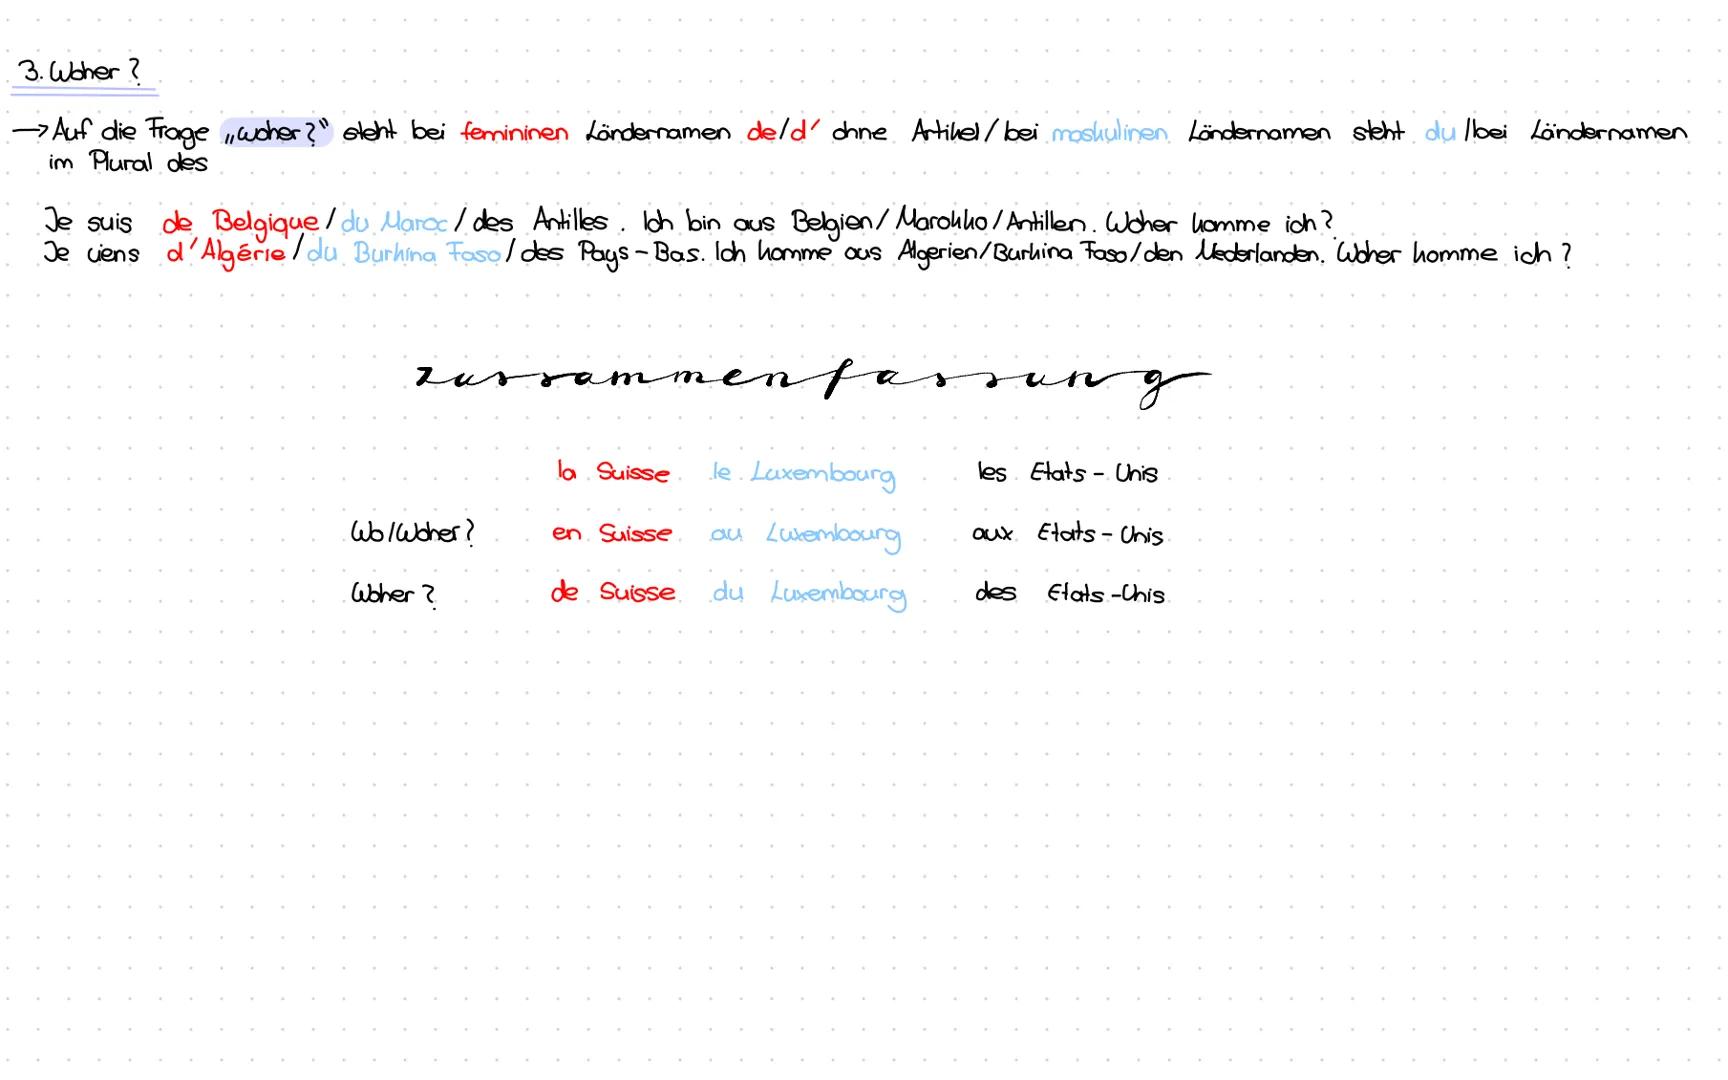 3. Woher?
→ Auf die Frage „woher?“ steht bei femininen Ländernamen de/d' ohne Artikel/bei maskulinen Ländernamen steht du/bei Ländernamen
im Plural des
Je suis de Belgique/du Maroc/des Antilles. Ich bin aus Belgien/Marokko/Antillen. Woher komme ich?
Je viens d'Algérie/du Burkina Faso/des Pays-Bas. Ich komme aus Algerien/Burkina Faso/den Niederlanden. Woher komme ich?
zusammenfassung
la Suisse le Luxembourg les Etats-Unis
Wo/Woher? en Suisse au Luxembourg aux Etats-Unis
Woher? de Suisse du Luxembourg des Etats-Unis